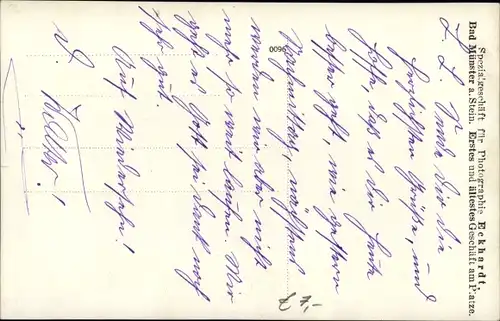 Spezialgeschäft für Photographie Eckhardt,
Bad Münster a. Stein. Erstes und ältestes Geschäft am Platze.
0096
L. L. Sende Dir die
herzlichsten Grüße, und
hoffe, daß es Dir heute
besser geht, wie gestern
Nachmittag, nächstens
werden wir aber nicht
mehr so weit laufen. Mir
geht es Gott sei dank noch
sehr gut.
Auf Wiedersehn!
1,-